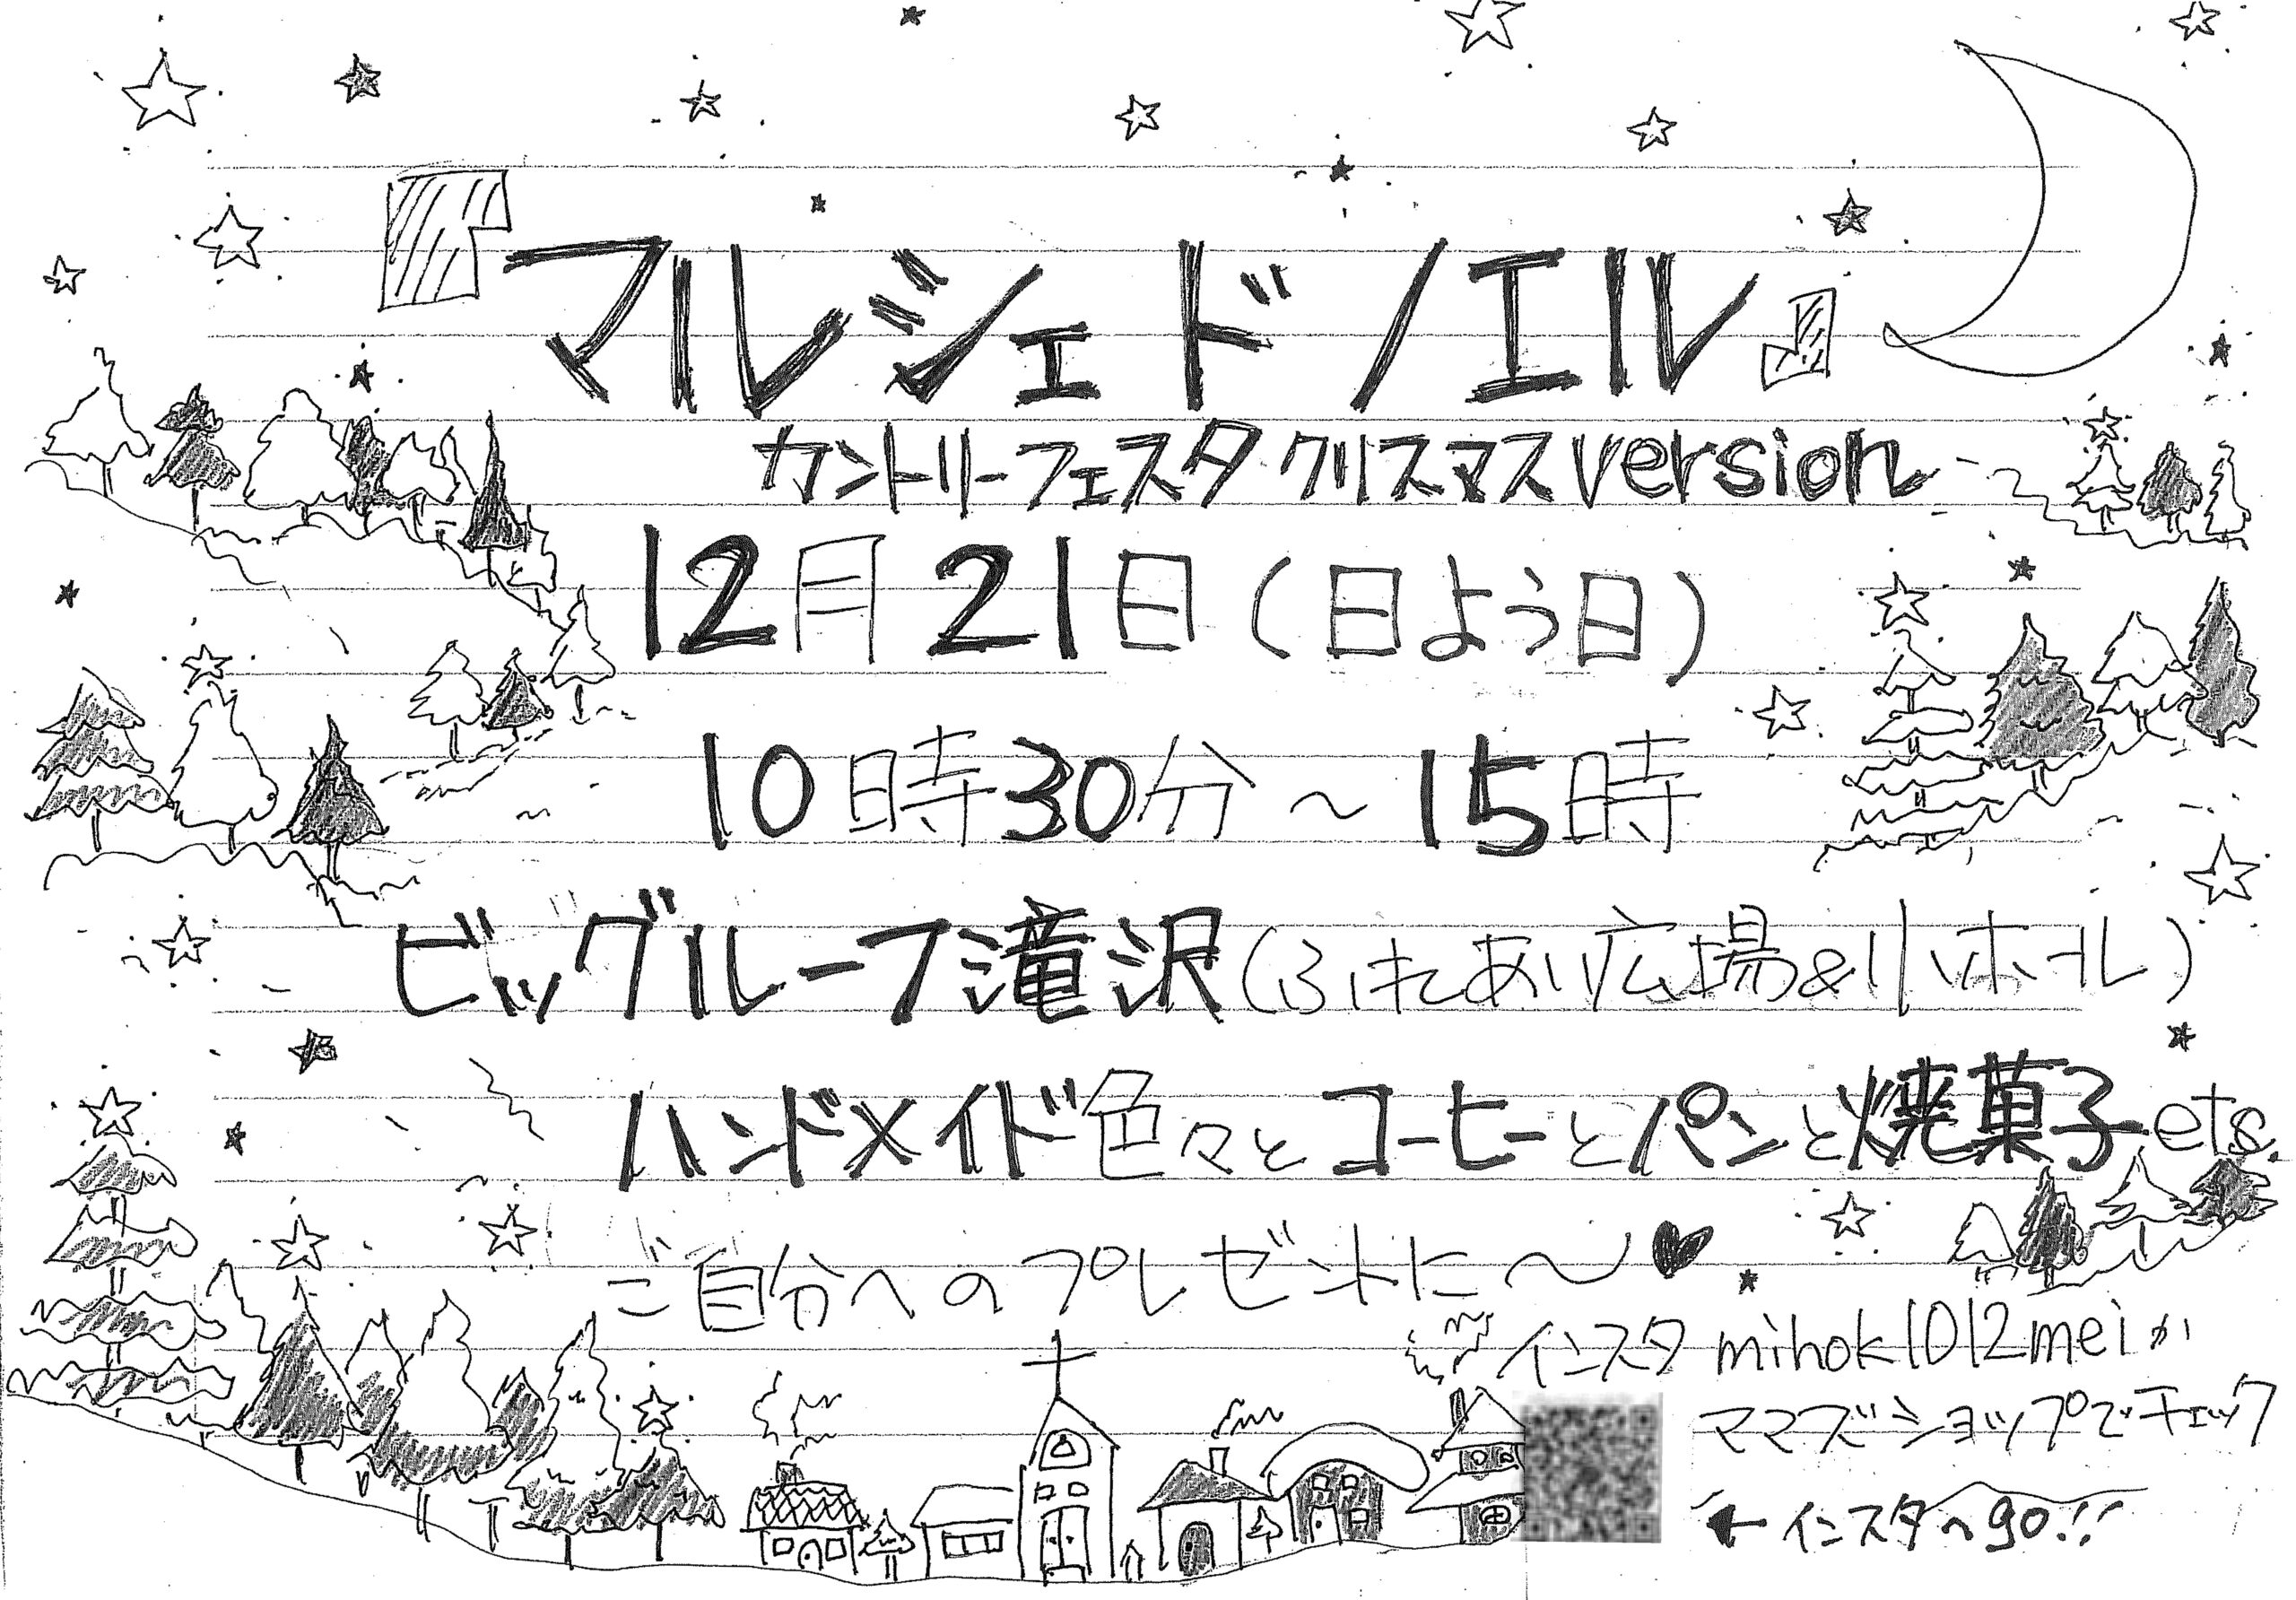 『マルシェドノエル』
カントリーフェスタ クリスマスversion
12月21日(日よう日)
10時30分～15時
ビッグルーフ滝沢(ふれあい広場&小ホール)
ハンドメイド色々とコーヒーとパンと焼菓子ets.
ご自分へのプレゼントに～♥
インスタ mihok1012meiか
ママズショップでチェック
←インスタへgo!!